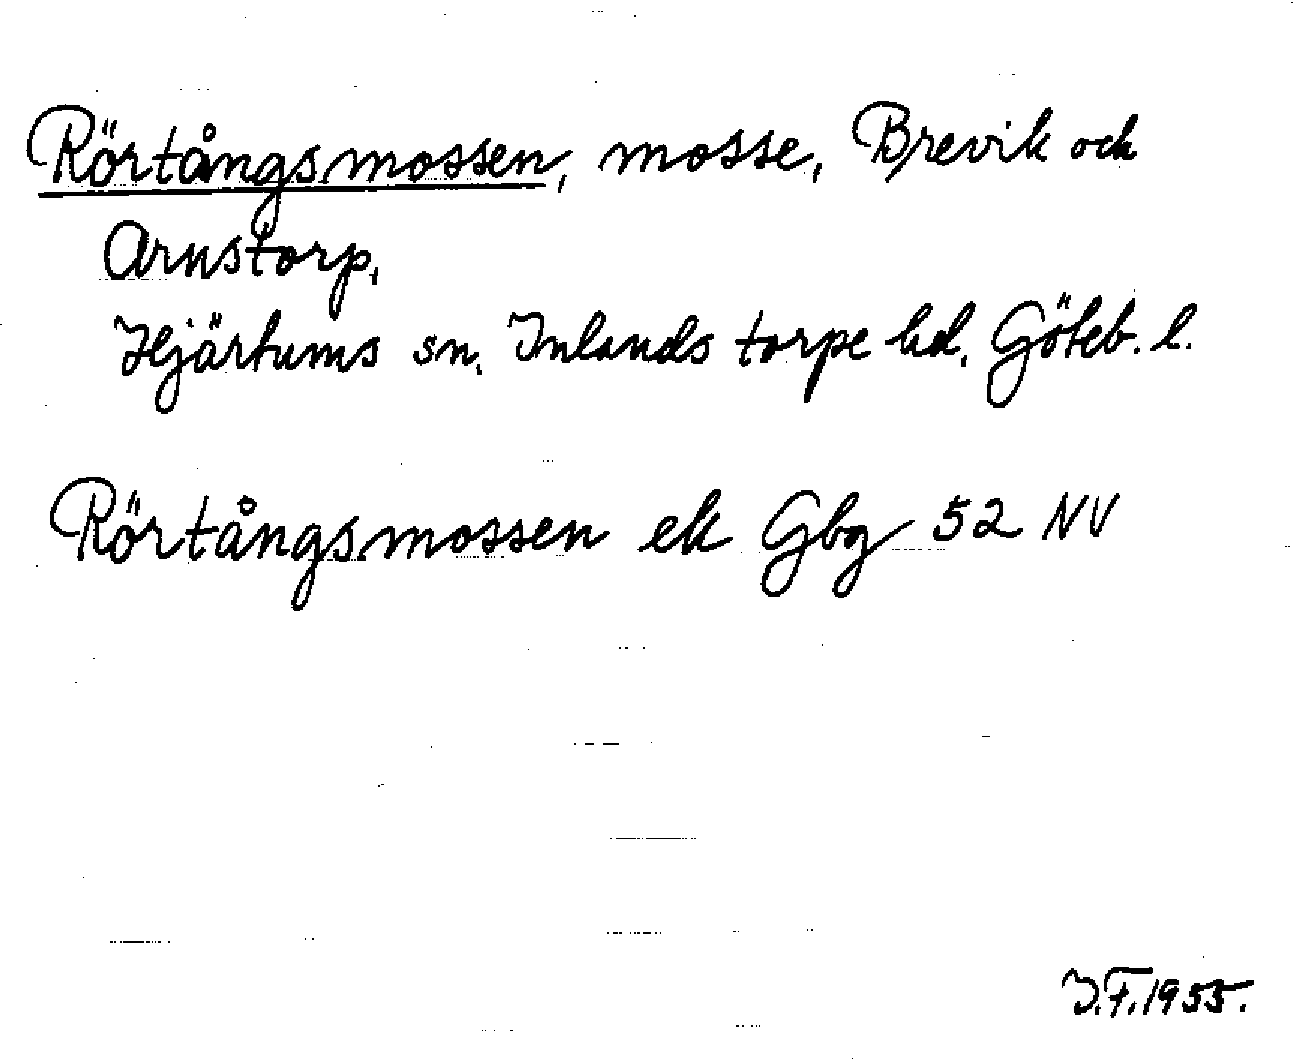 Rörtångsmossen, mosse, Brevik och
Arnstorp,
Hjärtums sn, Inlands torpe hd, Göteb. l.
Rörtångsmossen ek Gbg 52 NV
J.F. 1955.